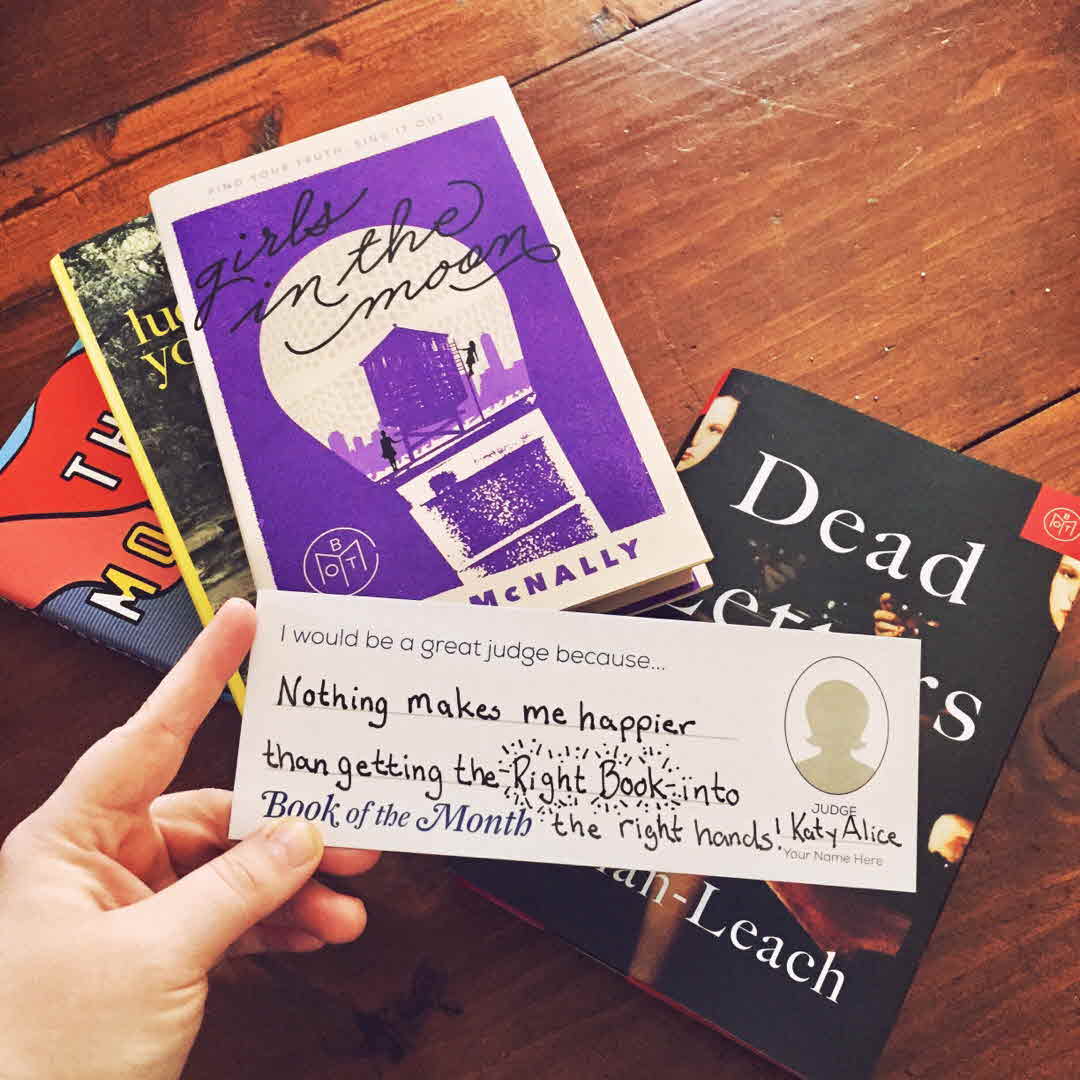 FIND YOUR TRUTH. SING IT OUT
girls
in the
moon
McNALLY
BOTM
luc
yo
TH
MO
Dead
Letters
BOTM
an-Leach
I would be a great judge because...
Nothing makes me happier
than getting the Right Book into
the right hands!
Book of the Month
JUDGE
Katy Alice
Your Name Here